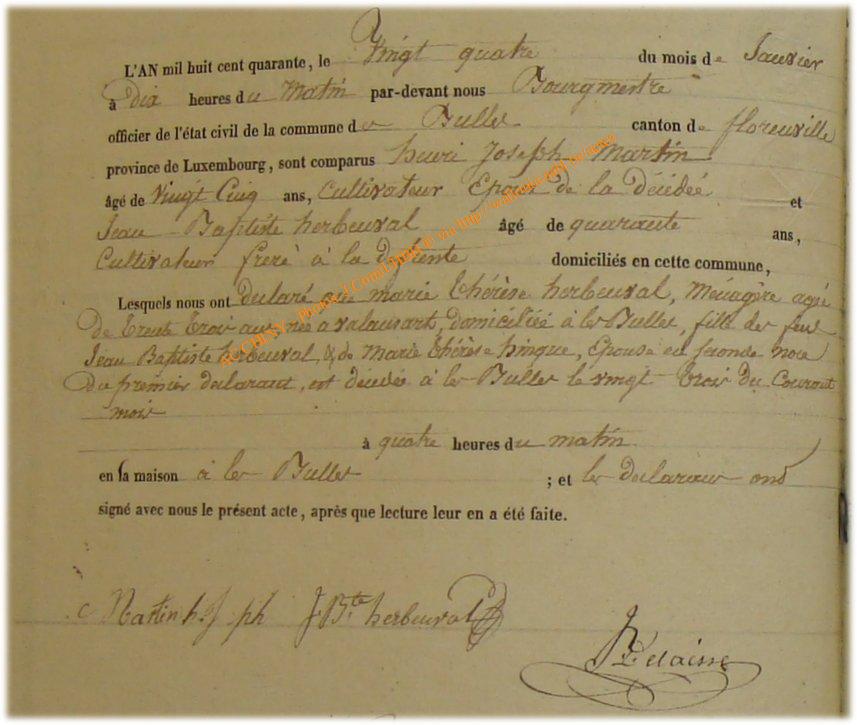 L'AN mil huit cent quarante, le Vingt quatre du mois de Janvier
à Dix heures du Matin par-devant nous Bourgmestre
officier de l'état civil de la commune de Bulles canton de florenville
province de Luxembourg, sont comparus henri Joseph Martin
âgé de Vingt Cinq ans, Cultivateur Epoux de la décédée et
Jean Baptiste herbeuval âgé de quarante ans,
Cultivateur frere à la défunte domiciliés en cette commune,
Lesquels nous ont declaré que marie thérèse herbeuval, Menagère agée
De trente trois ans née a valansart, domiciliée à les Bulles, fille des feus
Jean Baptiste herbeuval, & de Marie thérèse hinque, Epouse en seconde noce
Du premier declarant, est décédée à les Bulles le vingt trois du Courant
mois
à quatre heures du matin
en sa maison à les Bulles ; et les declarans ond
signé avec nous le présent acte, après que lecture leur en a été faite.
Martin h. Jph J Bte herbeuval